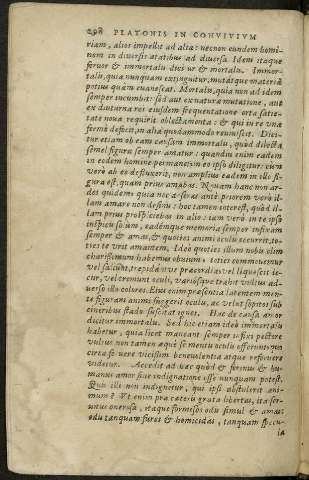 298 PLATONIS IN CONVIVIUM
riam, alios impellit ad alta: necnon eundem homi-
nem in diversis ætatibus ad diversa. Idem itaque
fervor & immortalis dicitur & mortalis. Immor-
talis, quia nunquam extinguitur, mutatque materiam
potius quam evanescat. Mortalis, quia non ad idem
semper incumbit: sed aut ex natura mutatione, aut
ex diuturna rei eiusdem frequentatione orta satie-
tate nova requirit oblectamenta: & qui in re una
fermè deficit, in alia quodammodo reviviscit. Dici-
tur etiam ob eam causam immortalis, quòd dilecta
semel figura semper amatur: quandiu enim eadem
in eodem homine permanet, in eo ipso diligitur: cùm
verò ab eo defluxerit, non amplius eadem in illo fi-
gura est, quam prius amabas.
des quidem, quia nec
lam amare non desinis: hoc tamen interest, quòd il-
lam prius prospiciebas in alio: iam verò in te ipso
inspicis
semper & amas, & quoties animi oculis occurrit, to-
ties te urit amantem. Ideo quoties illum nobis olim
charissimum habemus obvium, toties commovemur
vel saliunt, trepidantve præcordia: vel liquescit ie-
cur, vel tremunt oculi, variosque trahit vultus ad-
verso illo colores. Eius enim præsentia latentem men-
te figuram animi suggerit oculis, ac velut sopitos sub
cineribus
dicitur immortalis. Sed hic etiam ideo immortalis
habetur, quia licet maneant semper infixi pectore
vultus non tamen æquè se mentis oculis offerunt:
circo se vene vicissim benevolentia atque refervere
videtur. Accedit ad hæc quòd & ferinus & hu-
manus amor sine indignatione esse nunquam potest.
Quis illi non indignetur, qui ipsi abstulerit ani-
mum? Ut enim præ cæteris grata libertas, ita ser-
vitus onerosa, itaque formosos odis simul & amas:
odis tanquam fures & homicidas, tanquam specu-
la